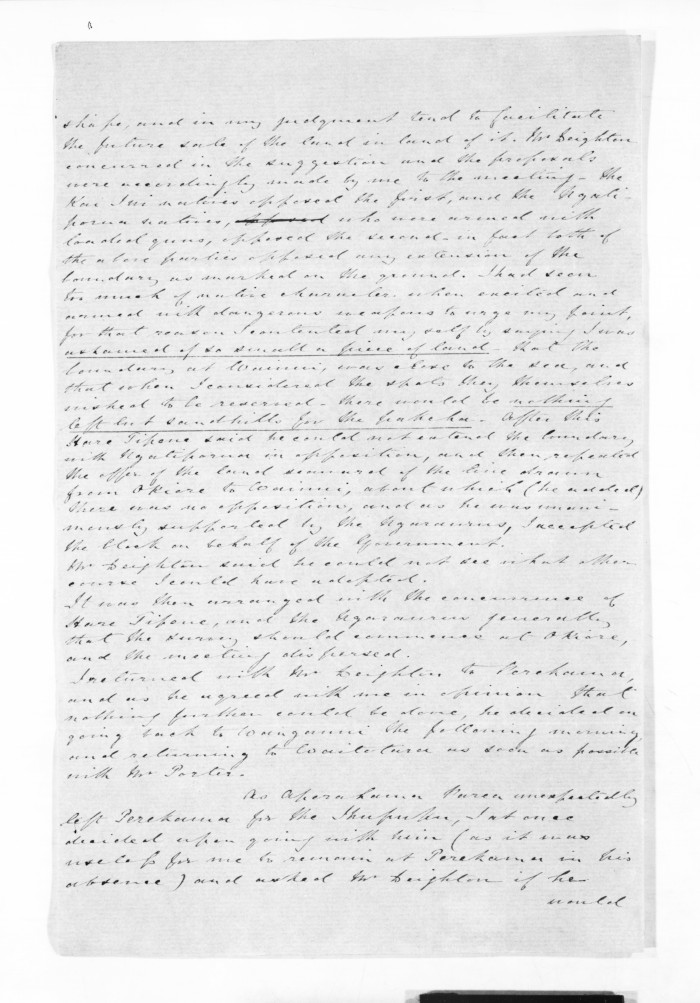 shape, and in my judgment tend to facilitate
the future sale of the land in land of it. Mr Deighton
concurred in the suggestion and the proposals
were accordingly made by me to the meeting - the
Kai Iwi natives opposed the first, and the Ngati-
porua natives, who were armed with
loaded guns, opposed the second - in fact both of
the above parties opposed any extension of the
boundary as marked on the ground. I had seen
too much of native character when excited and
armed with dangerous weapons to urge my point,
for that reason I contented my self by saying I was
ashamed of so small a piece of land - that the
boundary at Waiinui, was close to the sea, and
that when I considered the spots they themselves
wished to be reserved - there would be nothing
left but sandhills for the Pakeha. After this
Hare Tipene said he could not extend the boundary
with Ngatiporua in opposition, and then, repeated
the offer of the land seaward of the line drawn
from Okiore to Waiinui, about which (he added)
there was no opposition, and as he was unani-
mously supported by the Ngaraurus, I accepted
the block on behalf of the Government.
Mr Deighton said he could not see what other
course I could have adopted.
It was then arranged with the concurrence of
Hare Tipene, and the Ngaraurus generally
that the survey should commence at Okiore,
and the meeting dispersed.
I returned with Mr Deighton to Perekama,
and as he agreed with me in opinion that
nothing further could be done, he decided on
going back to Wanganui the following morning,
and returning to Waitotara as soon as possible
with Mr Porter.
As Aperahama Parea unexpectedly
left Perekama for the Ihupuku, I at once
decided upon going with him (as it was
useless for me to remain at Perekama in his
absence) and asked Mr Deighton if he
would